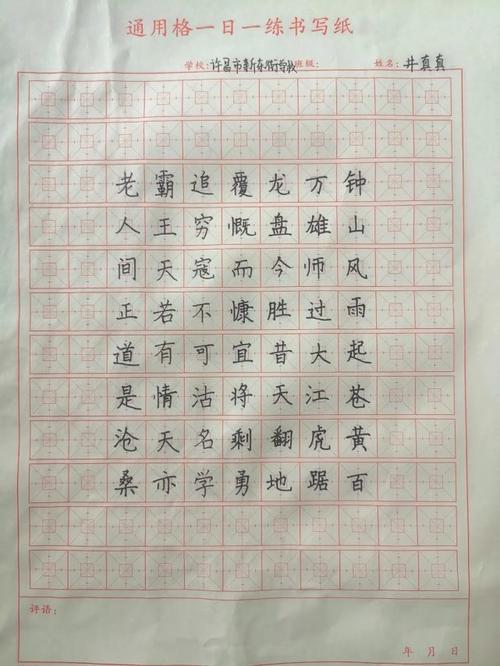 通用格一日一练书写纸
学校:许昌市新东街学校 班级: 姓名:井真真
钟山风雨起苍黄百
万雄师过大江虎踞
龙盘今胜昔天翻地
覆慨而慷宜将剩勇
追穷寇不可沽名学
霸王天若有情天亦
老人间正道是沧桑
评语:
年 月 日